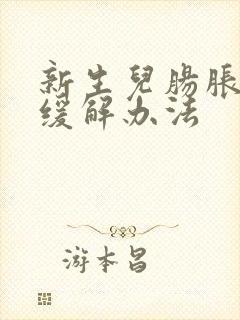 新生兒腸脹
缓解办法
游本昌